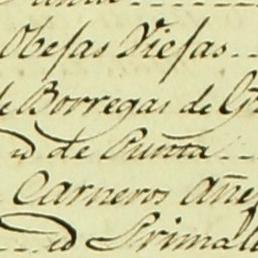 Obejas Viejas
de Borregas de
id de Punta
Carneros Añe
id Primal